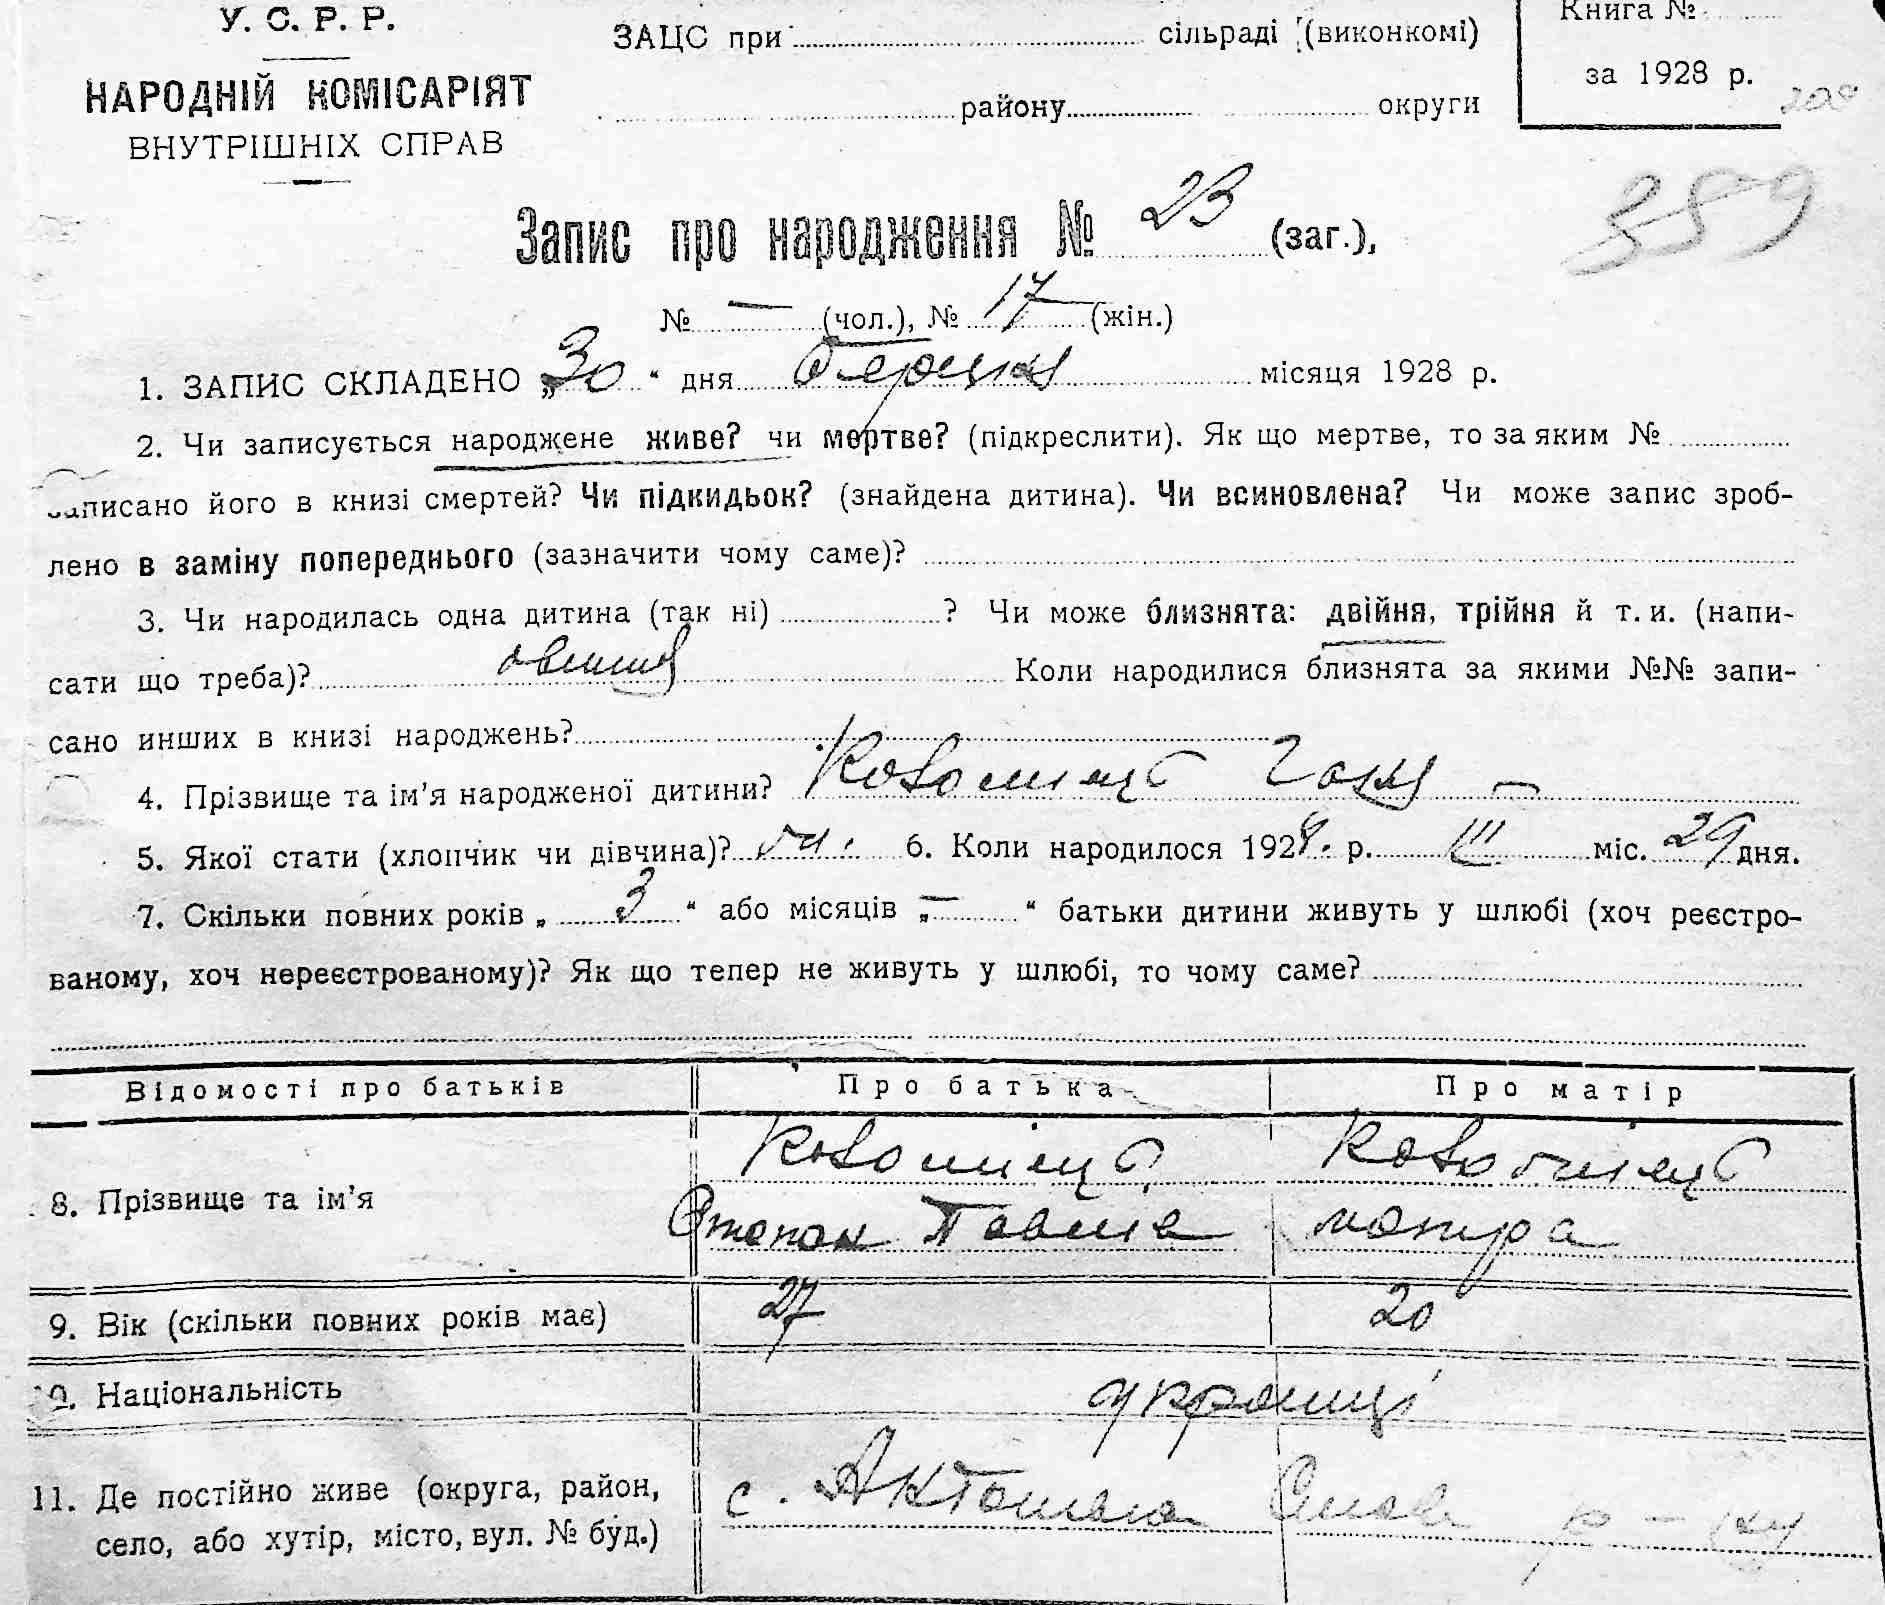 У. С. Р. Р.
НАРОДНІЙ КОМІСАРІЯТ
ВНУТРІШНІХ СПРАВ
ЗАЦС при сільраді (виконкомі)
району округи
Книга №
за 1928 р.
208
389
Запис про народження № 23 (заг.),
№ — (чол.), № 17 (жін.)
1. ЗАПИС СКЛАДЕНО „30“ дня березня місяця 1928 р.
2. Чи записується народжене живе? чи мертве? (підкреслити). Як що мертве, то за яким №
записано його в книзі смертей? Чи підкидьок? (знайдена дитина). Чи всиновлена? Чи може запис зроб-
лено в заміну попереднього (зазначити чому саме)?
3. Чи народилась одна дитина (так ні) ? Чи може близнята: двійня, трійня й т. и. (напи-
сати що треба)? Коли народилися близнята за якими №№ запи-
сано инших в книзі народжень?
4. Прізвище та ім’я народженої дитини? Коломієць Галя —
5. Якої стати (хлопчик чи дівчина)? 6. Коли народилося 1928. р. III міс. 29 дня.
7. Скільки повних років „ 3 “ або місяців „ — “ батьки дитини живуть у шлюбі (хоч реєстро-
ваному, хоч нереєстрованому)? Як що тепер не живуть у шлюбі, то чому саме?
Відомості про батьків Про батька Про матір
8. Прізвище та ім’я Коломієць Коломієць
Степан Павл мотря
9. Вік (скільки повних років має) 27 20
10. Національність українці
11. Де постійно живе (округа, район,
село, або хутір, місто, вул. № буд.) с. р-ну